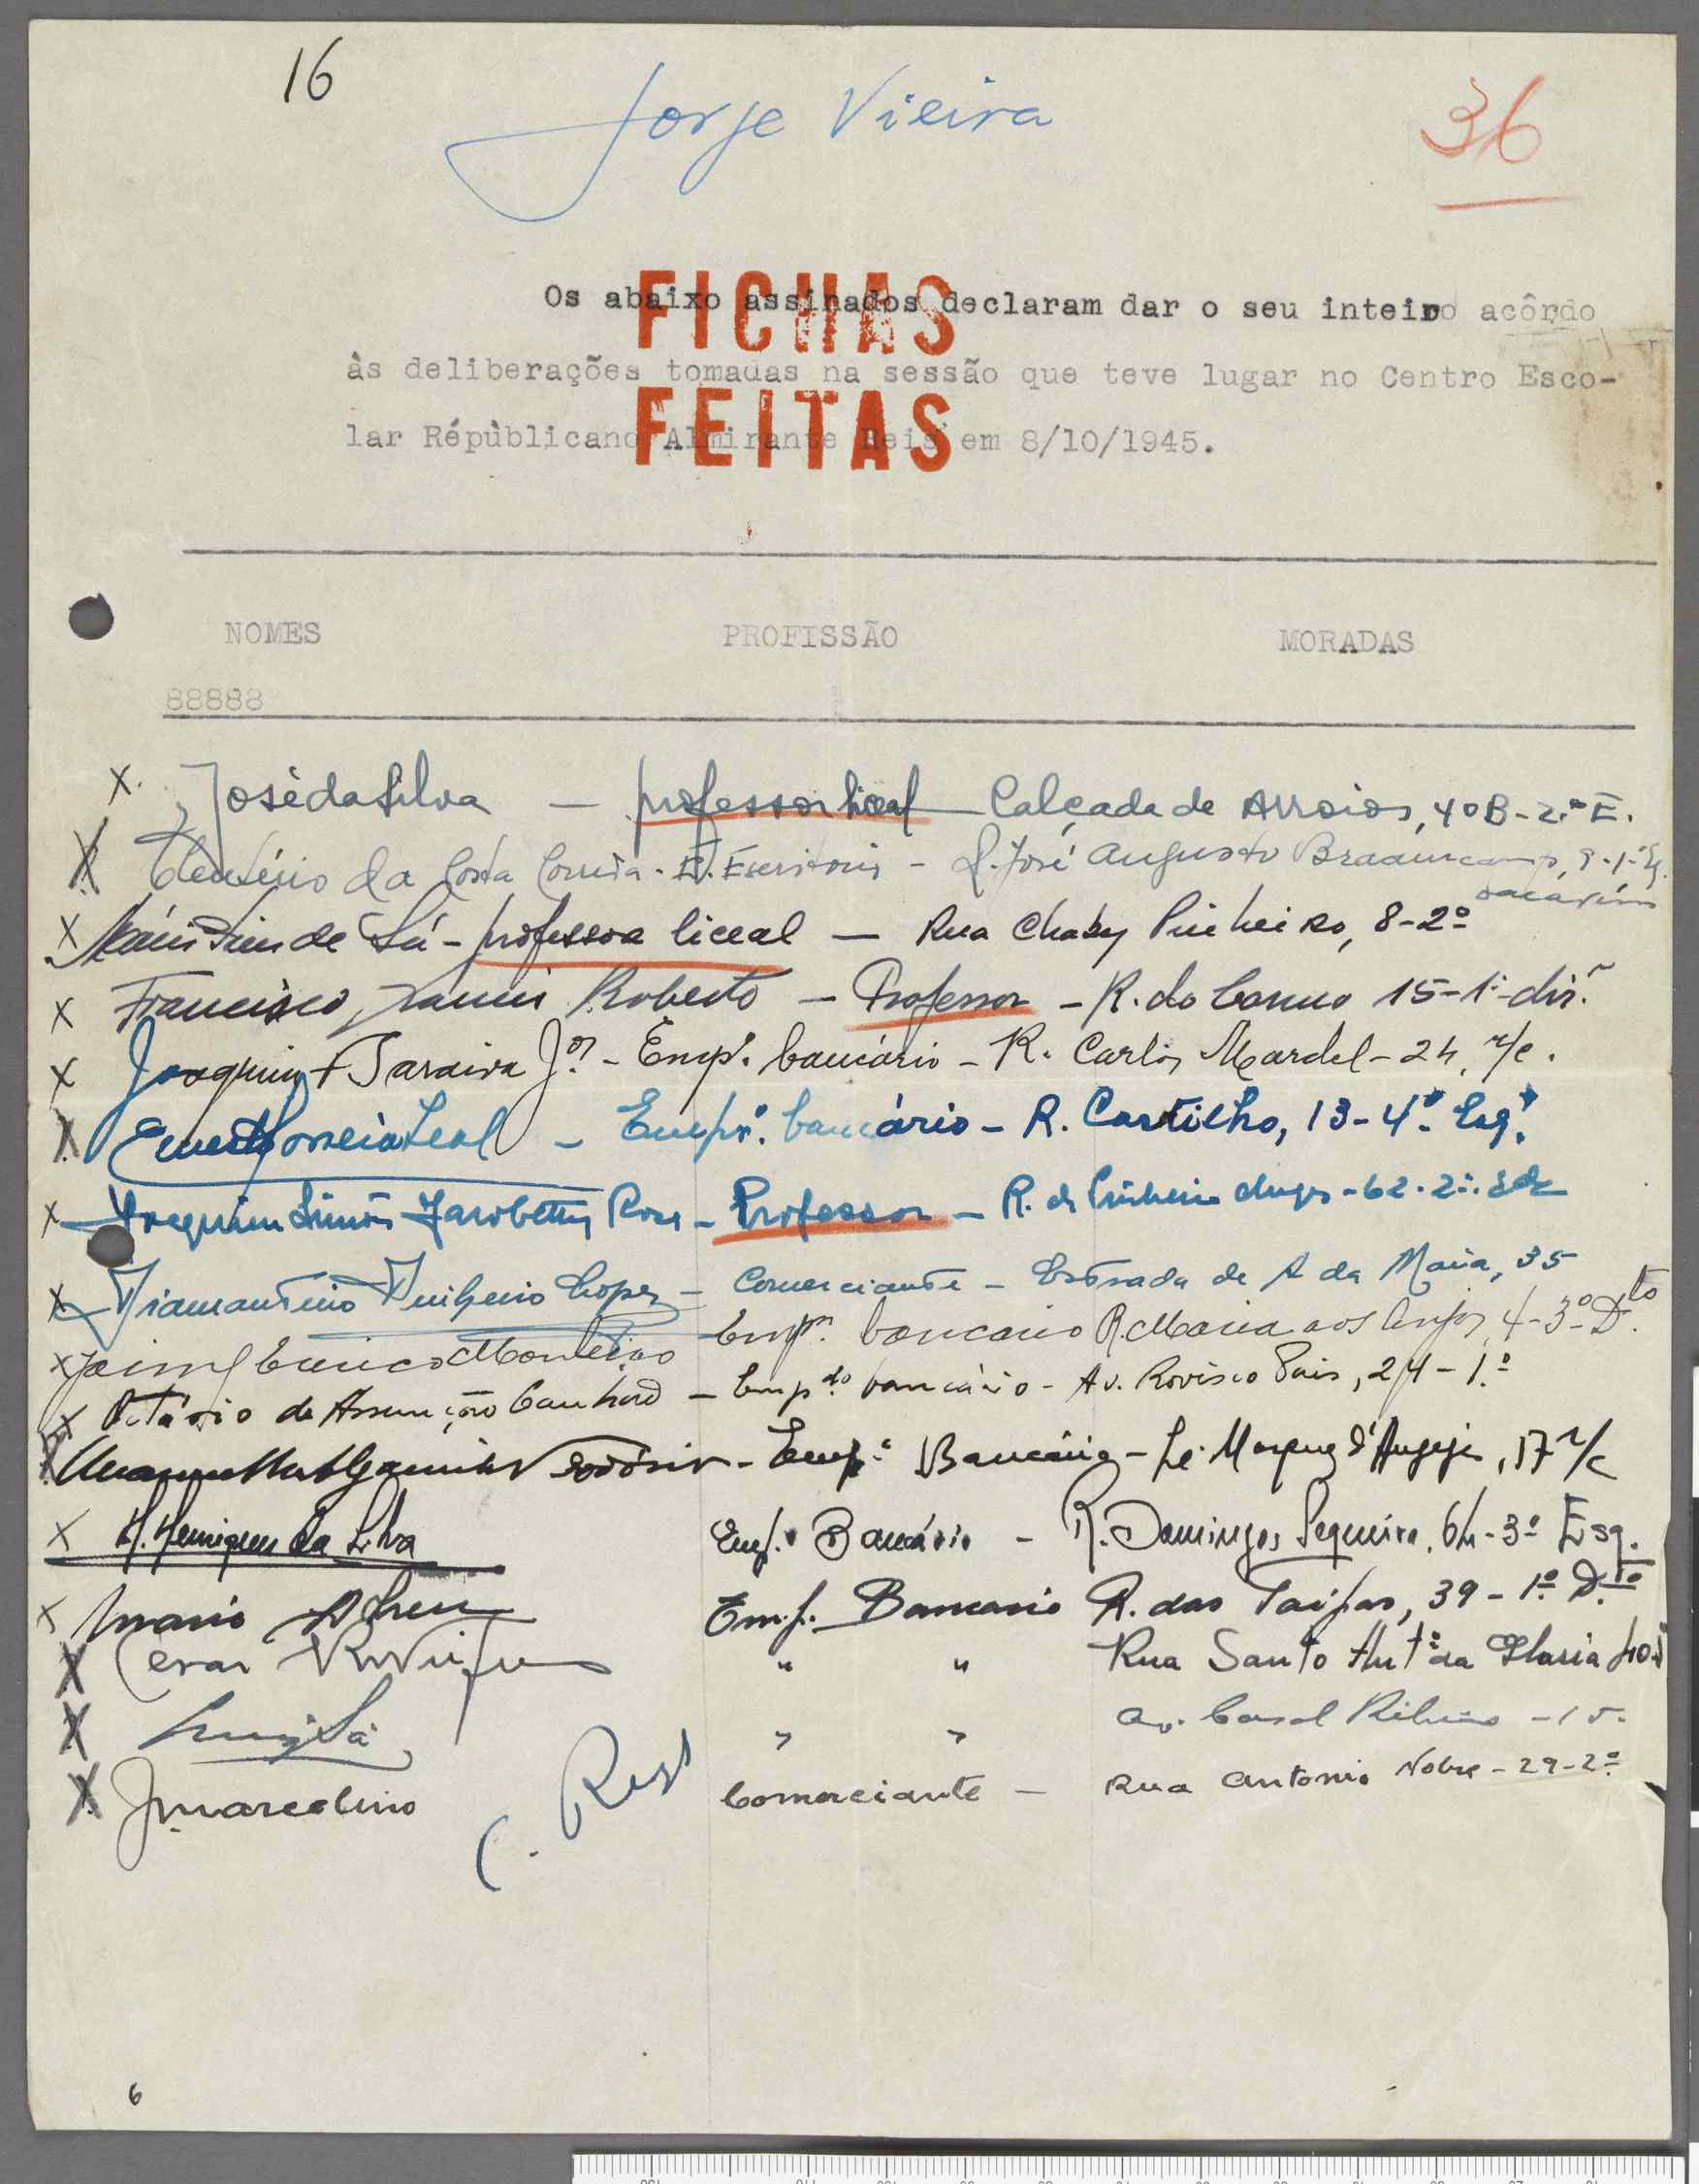 16
Jorge Vieira
36
Os abaixo assinados declaram dar o seu inteiro acôrdo
FICHAS
às deliberações tomadas na sessão que teve lugar no Centro Esco-
FEITAS
lar Répùblicano Almirante Reis em 8/10/1945.
NOMES PROFISSÃO MORADAS
88888
x José da Silva — professor liceal — Calçada de Arroios, 40B - 2.º E.
x da Costa Correia - E. Escritorio - R. José Augusto Braamcamp, 9-1º
Sacavém
x de Sá - professora liceal — Rua Chaby Pinheiro, 8-2º
x Francisco Xavier Roberto — Professor — R. do Carmo 15-1º-dir.
x Joaquim F Saraiva Jor - Emp. bancário - R. Carlos Mardel - 24, r/c.
x Correia Leal - Empr. bancário - R. Castilho, 13-4º Esq.
x Joaquim Simões Rosa - Professor - R. - 62-2º
x Diamantino Lopes - Comerciante - Estrada de A da Maia, 35
x Jaime Eurico Monteiro Emp. bancario R. Maria dos Anjos, 4-3º-Dto
x Octávio da Assunção Canhão - Empdo bancário - Av. Rovisco Pais, 24-1.º
x - Emp. Bancário - , 17 r/c
x H. Henriques da Silva Emp. Bancário - R. Domingos Sequeira, 64-3º Esq.
x Mario Emp. Bancario R. das Taipas, 39-1º Dto
x Cesar " " Rua Santo Antº da Glaria
x Luiz Sá " " Av. Casal Ribeiro - 15-
x J. Marcelino Comerciante — Rua Antonio Nobre - 29-2º
C. Reis
6